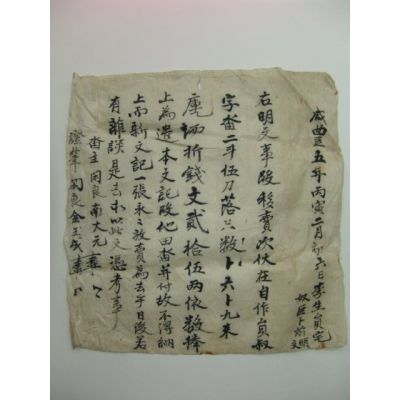 咸豊五年丙寅二月初六日李生員宅
奴 卜前明文
右明文事段移賣次伏在自作員叔
字畓二斗伍刀落只数卜六卜九束
庫価折錢文貳拾伍兩依数捧
上為遣本文記段他田畓并付故不得納
上而新文記一張永永放賣為去乎日後若
有雜談是去等以此文憑考事
畓主 閑良南大元
證筆 閑良金玉成